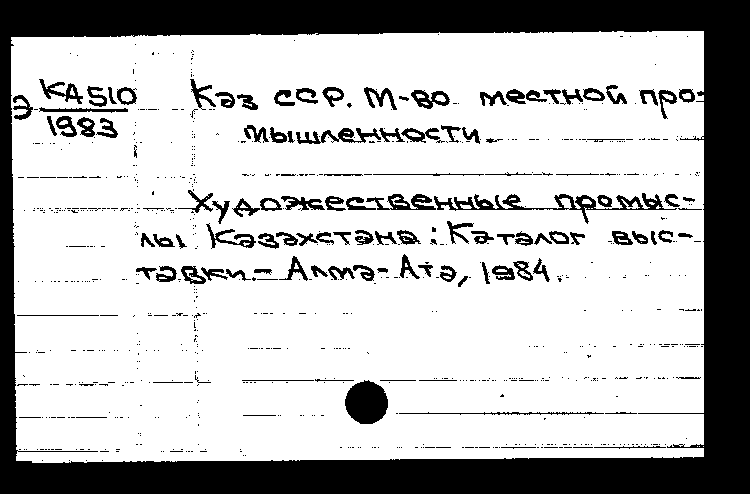 Э КА510 Каз ССР. М-во местной про-
1983 мышленности.
Художественные промыс-
лы Казахстана: Каталог выс-
тавки. - Алма-Ата, 1984.